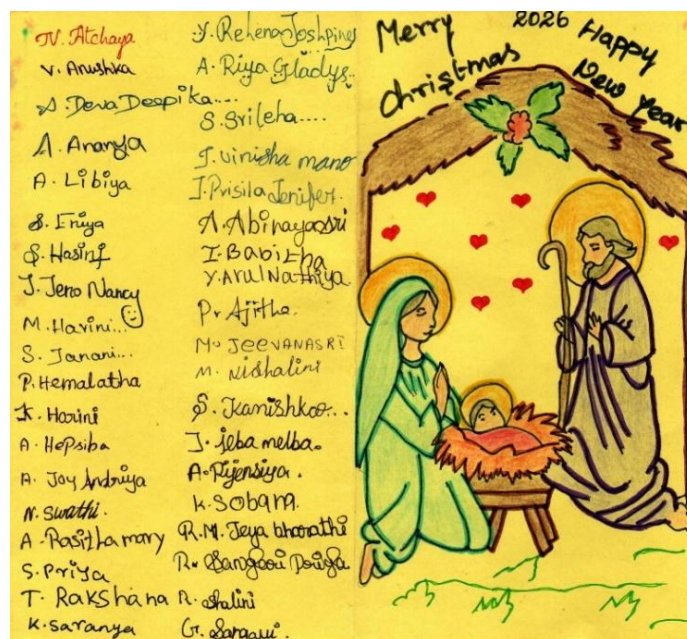 N. Atchaya
V. Anushka
S. Deva Deepika....
A. Ananya
A. Libiya
S. Eniya
S. Hasini
J. Jeno Nancy
M. Harini...
S. Janani...
P. Hemalatha
K. Harini
A. Hepsiba
A. Joy Andriya
N. Swathi.
A. Rasitha mary
S. Priya
T. Rakshana
K. Saranya
Y. Rehena Joshpine
A. Riya Gladys...
S. Srileha....
J. Vinisha mano
J. Prisila Jenifer.
A. Abinayasri
I. Babitha
Y. Arul Nathiya
P. Ajitha.
M. JEEVANASRI
M. Nishalini
S. Kanishka...
J. jeba melba.
A. Rijensiya.
K. Sobam
R.M. Jeya bharathi
R. Sangavi
R. Shalini
G. Sangavi.
Merry
Christmas
2026 Happy
New Year